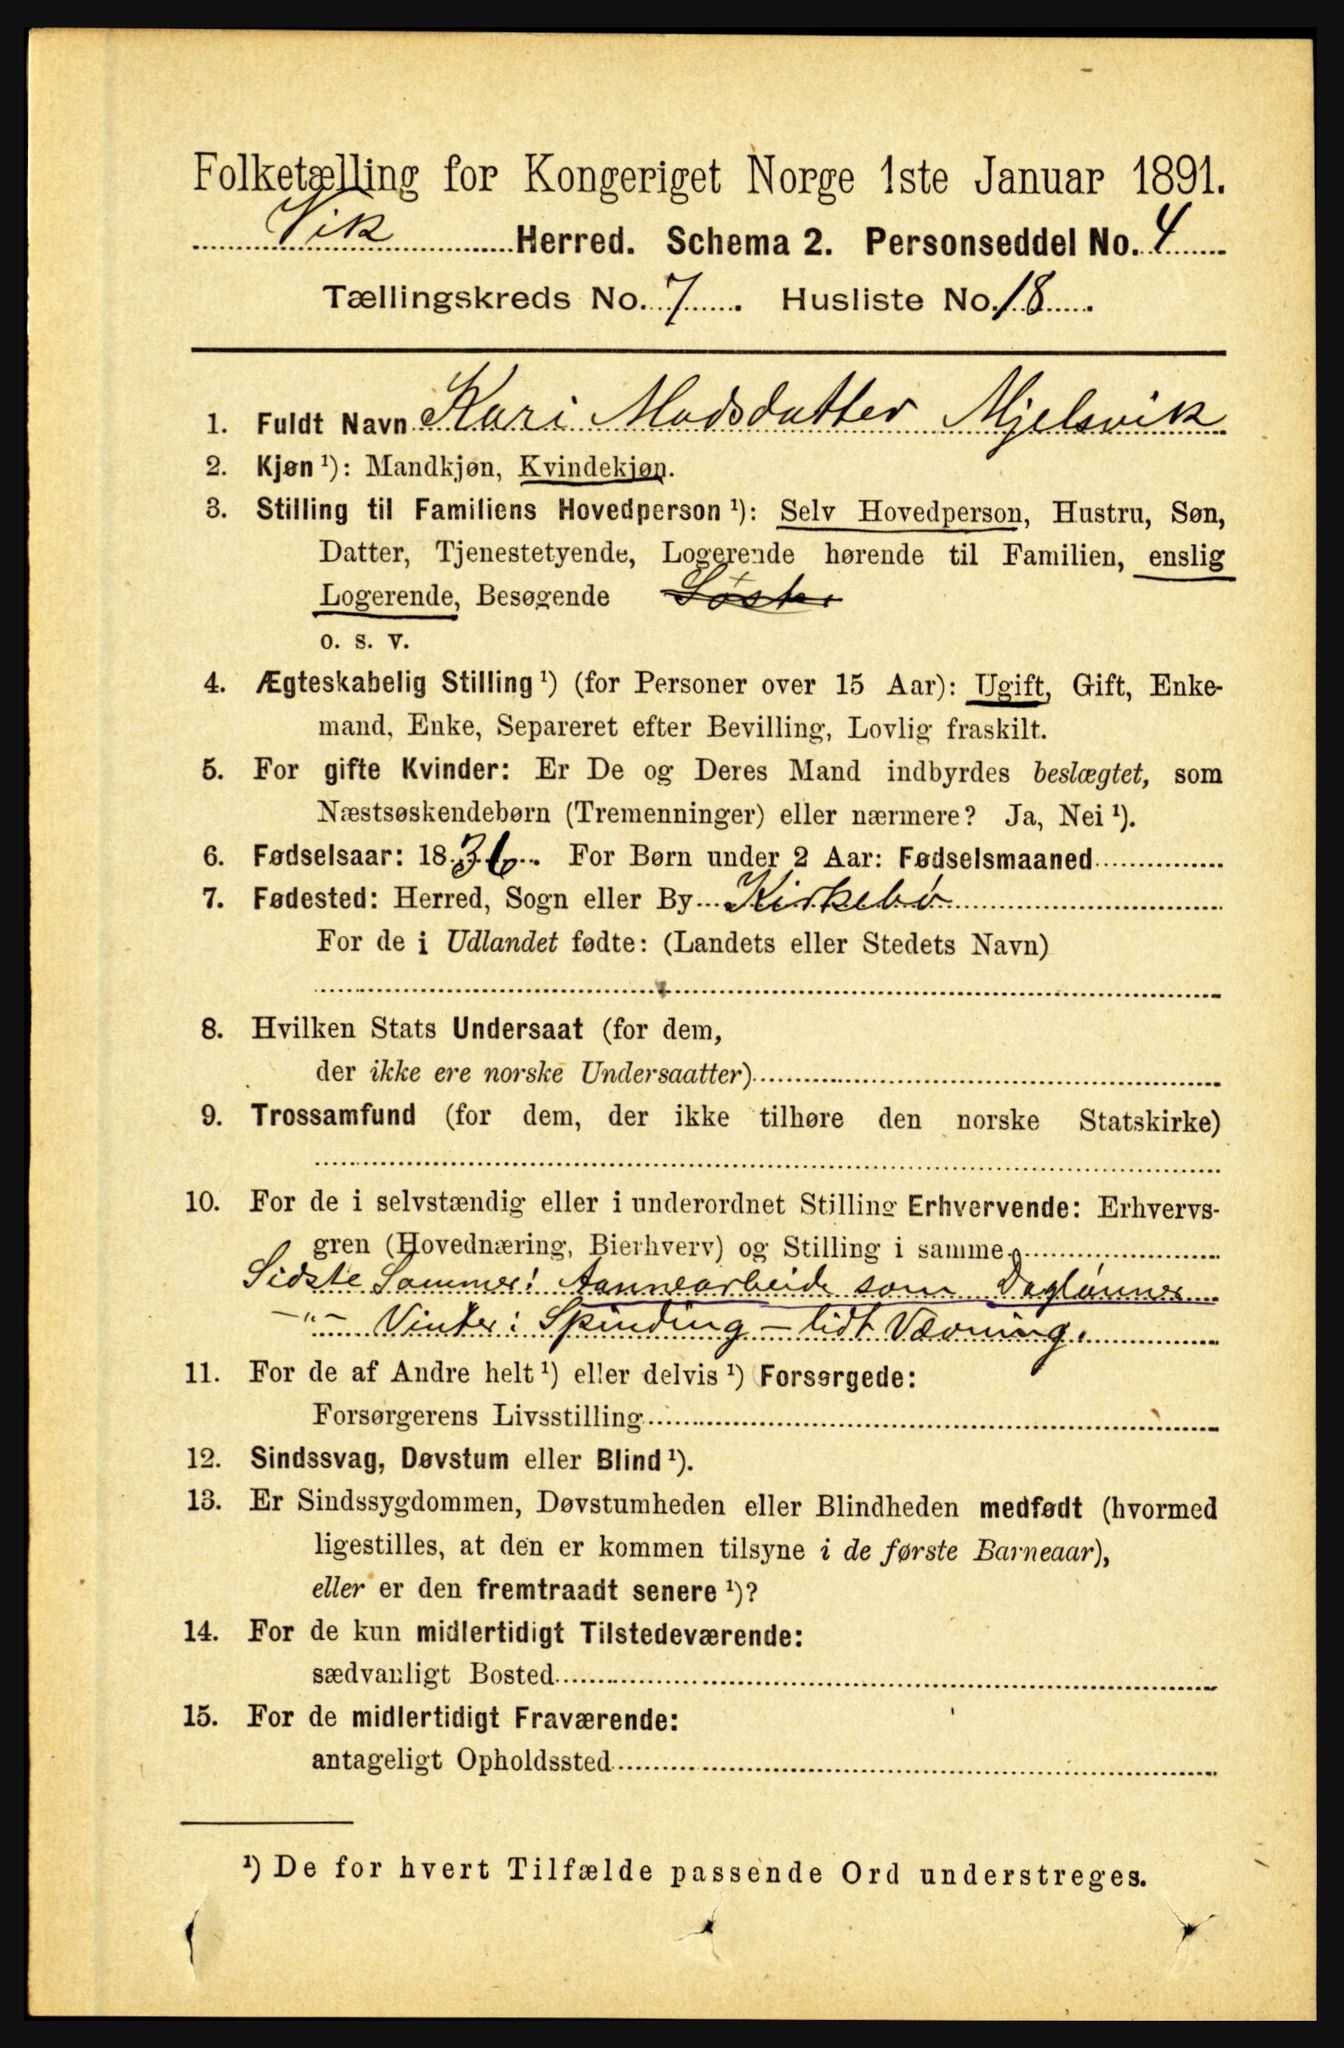 Folketælling for Kongeriget Norge 1ste Januar 1891.
Vik Herred. Schema 2. Personseddel No. 4
Tællingskreds No. 7. Husliste No. 18.
1. Fuldt Navn Kari Madsdatter Mjelsvik
2. Kjøn ¹): Mandkjøn, Kvindekjøn.
3. Stilling til Familiens Hovedperson ¹): Selv Hovedperson, Hustru, Søn,
Datter, Tjenestetyende, Logerende hørende til Familien, enslig
Logerende, Besøgende Søster
o. s. v.
4. Ægteskabelig Stilling ¹) (for Personer over 15 Aar): Ugift, Gift, Enke-
mand, Enke, Separeret efter Bevilling, Lovlig fraskilt.
5. For gifte Kvinder: Er De og Deres Mand indbyrdes beslægtet, som
Næstsøskendebørn (Tremenninger) eller nærmere? Ja, Nei ¹).
6. Fødselsaar: 1836. For Børn under 2 Aar: Fødselsmaaned
7. Fødested: Herred, Sogn eller By Kirkebø
For de i Udlandet fødte: (Landets eller Stedets Navn)
8. Hvilken Stats Undersaat (for dem,
der ikke ere norske Undersaatter)
9. Trossamfund (for dem, der ikke tilhøre den norske Statskirke)
10. For de i selvstændig eller i underordnet Stilling Erhvervende: Erhvervs-
gren (Hovednæring, Bierhverv) og Stilling i samme
Sidste Sommer: Aannearbeide som Daglønner
—"— Vinter: Spinding – lidt Vævning.
11. For de af Andre helt ¹) eller delvis ¹) Forsørgede:
Forsørgerens Livsstilling
12. Sindssvag, Døvstum eller Blind ¹).
13. Er Sindssygdommen, Døvstumheden eller Blindheden medfødt (hvormed
ligestilles, at den er kommen tilsyne i de første Barneaar),
eller er den fremtraadt senere ¹)?
14. For de kun midlertidigt Tilstedeværende:
sædvanligt Bosted
15. For de midlertidigt Fraværende:
antageligt Opholdssted
¹) De for hvert Tilfælde passende Ord understreges.